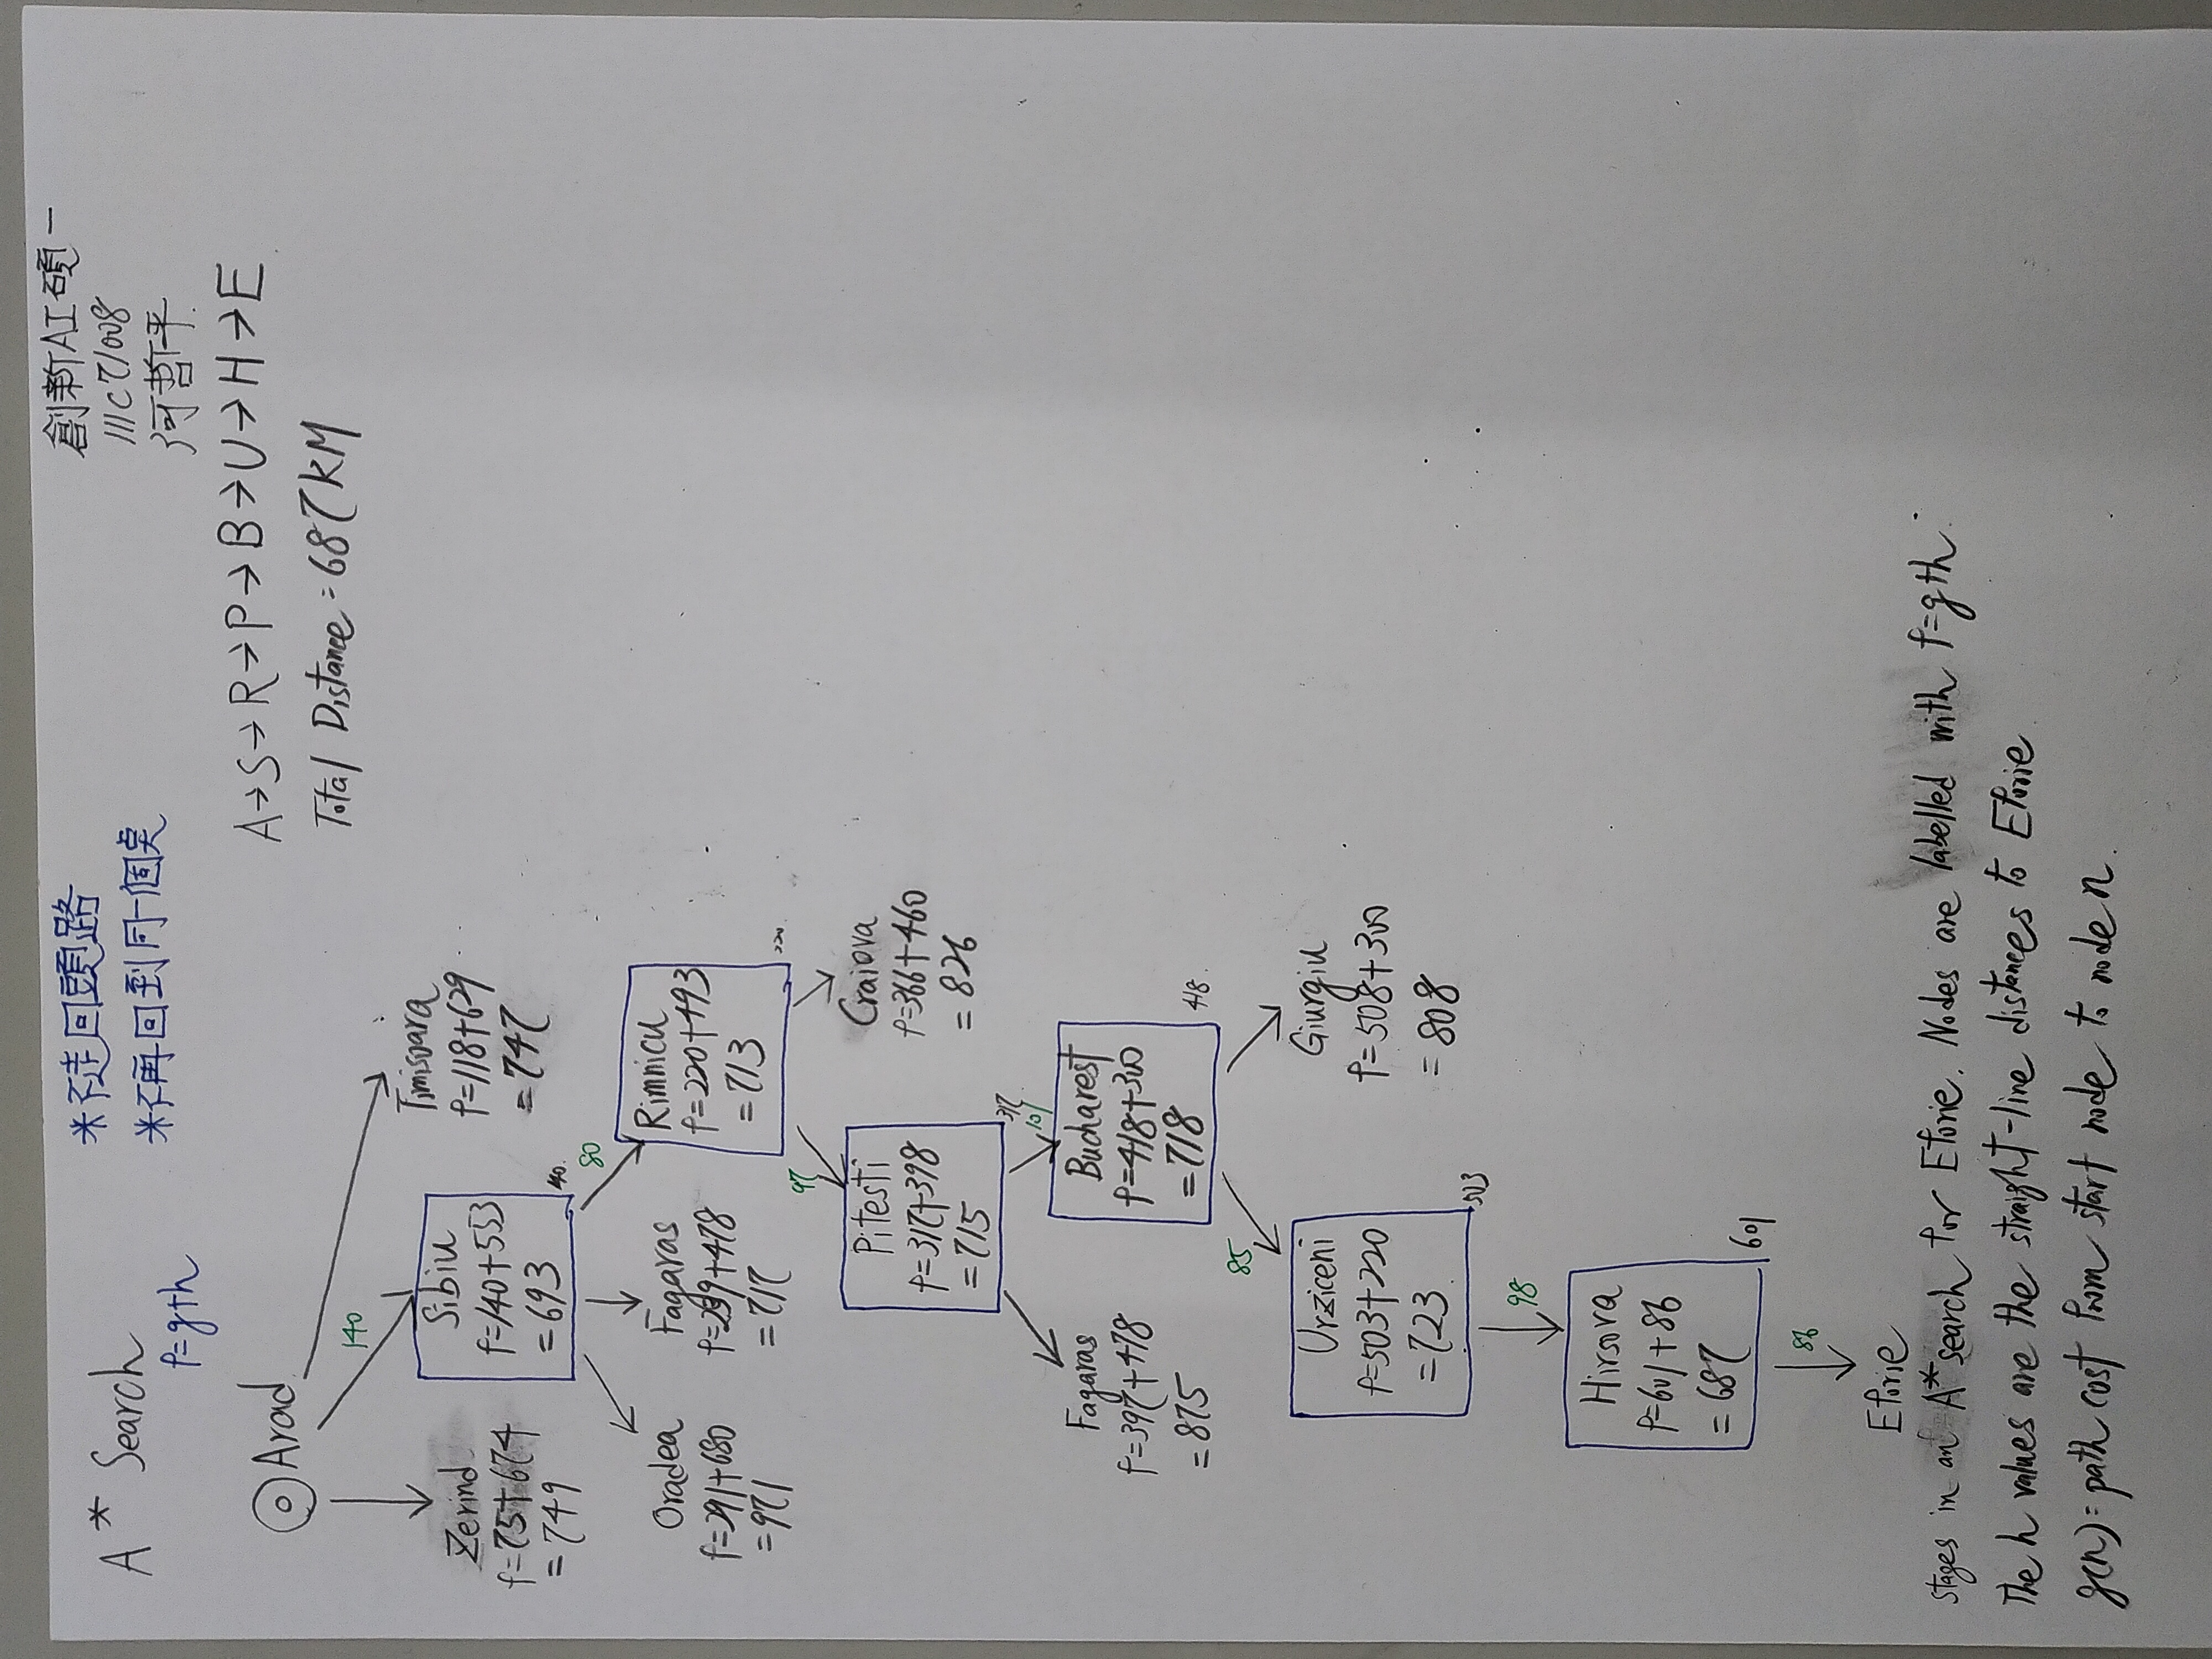 A* Search
f=g+h
*不走回頭路
*不再回到同一個點
創新AI碩一
111C71008
何哲平
A→S→R→P→B→U→H→E
Total Distance=687KM
Arad
140
Zerind
f=75+674
=749
Sibiu
f=140+553
=693
140
Timisoara
f=118+629
=747
80
Oradea
f=291+680
=971
Fagaras
f=239+478
=717
Rimnicu
f=220+493
=713
220
97
Pitesti
f=317+398
=715
317
Craiova
f=366+460
=826
101
Fagaras
f=397+478
=875
Bucharest
f=418+300
=718
418
85
Urziceni
f=503+220
=723
503
Giurgiu
f=508+300
=808
98
Hirsova
f=601+86
=687
601
86
Eforie
stages in an A* search for Eforie. Nodes are labelled with f=g+h.
The h values are the straight-line distances to Eforie
g(n)=path cost from start node to node n.